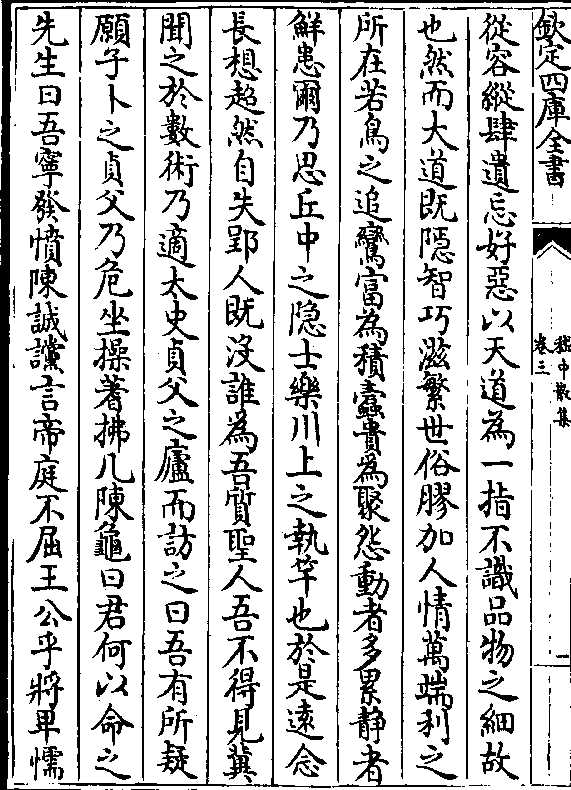 欽定四庫全書
嵇中散集
卷三
一
從容縱肆遺忘好惡以天道為一指不識品物之細故
也然而大道既隱智巧滋繁世俗膠加人情萬端利之
所在若鳥之追鸞富為積蠹貴為聚怨動者多累静者
鮮患爾乃思丘中之隠士樂川上之執竿也於是遠念
長想超然自失郢人既没誰為吾質聖人吾不得見冀
聞之於數術乃適太史貞父之廬而訪之曰吾有所疑
願子卜之貞父乃危坐操蓍拂几陳龜曰君何以命之
先生曰吾寧發憤陳誠讜言帝庭不屈王公乎將卑懦